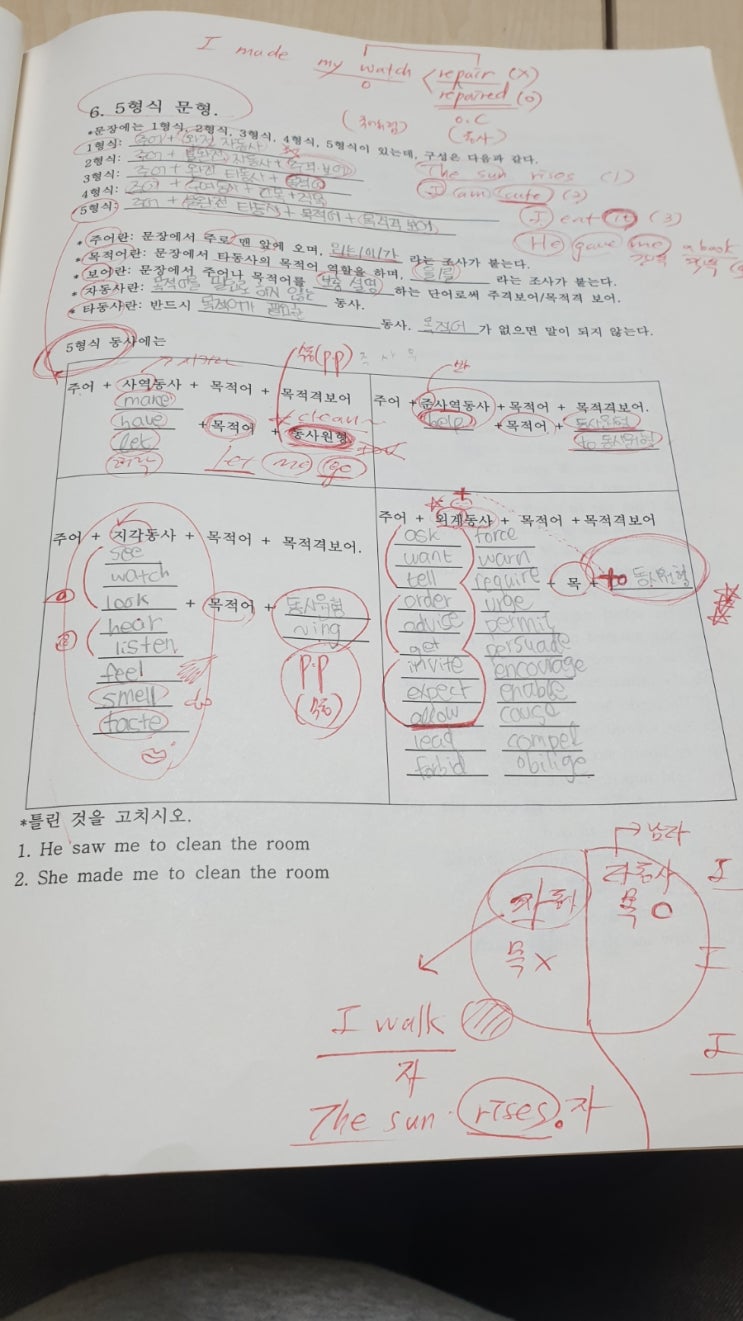 I made my watch repair (X)
repaired (O)
O
O.C
(동사)
6. 5형식 문형.
*문장에는 1형식, 2형식, 3형식, 4형식, 5형식이 있는데, 구성은 다음과 같다.
1형식: 주어 + 완전 자동사
2형식: 주어 + 불완전 자동사 + 주격 보어
3형식: 주어 + 완전 타동사 + 목적어
4형식: 주어 + 수여동사 + 간목 + 직목
5형식: 주어 + 불완전 타동사 + 목적어 + 목적격 보어
The sun rises (1)
I am cute (2)
I eat it (3)
He gave me a book
간목 직목
* 주어란: 문장에서 주로 맨 앞에 오며, 은/는/이/가 라는 조사가 붙는다.
* 목적어란: 문장에서 타동사의 목적어 역할을 하며, 을/를 라는 조사가 붙는다.
* 보어란: 문장에서 주어나 목적어를 보충 설명 하는 단어로써 주격보어/목적격 보어.
* 자동사란: 목적어를 필요로 하지 않는 동사.
* 타동사란: 반드시 목적어가 필요한 동사. 목적어 가 없으면 말이 되지 않는다.
5형식 동사에는
수동(p.p)
주어 + 사역동사 + 목적어 + 목적격보어
make
have + 목적어 + 동사원형
let
허락
clean
Let me go
주어 + 준사역동사 + 목적어 + 목적격보어.
반
help + 목적어 + 동사원형
to 동사원형
주어 + 지각동사 + 목적어 + 목적격보어.
see
watch
look + 목적어 + 동사원형
hear ving
listen
feel
smell
taste
P.P
(수동)
주어 + 외계동사 + 목적어 +목적격보어
ask force
want warn
tell require + 목 + to 동사원형
order urge
advise permit
get persuade
invite encourage
expect enable
allow cause
lead compel
forbid obilige
*틀린 것을 고치시오.
1. He saw me to clean the room
2. She made me to clean the room
남라
자동사
목 X
타동사
목 O
I
I
I
I walk
자
The sun rises. 자